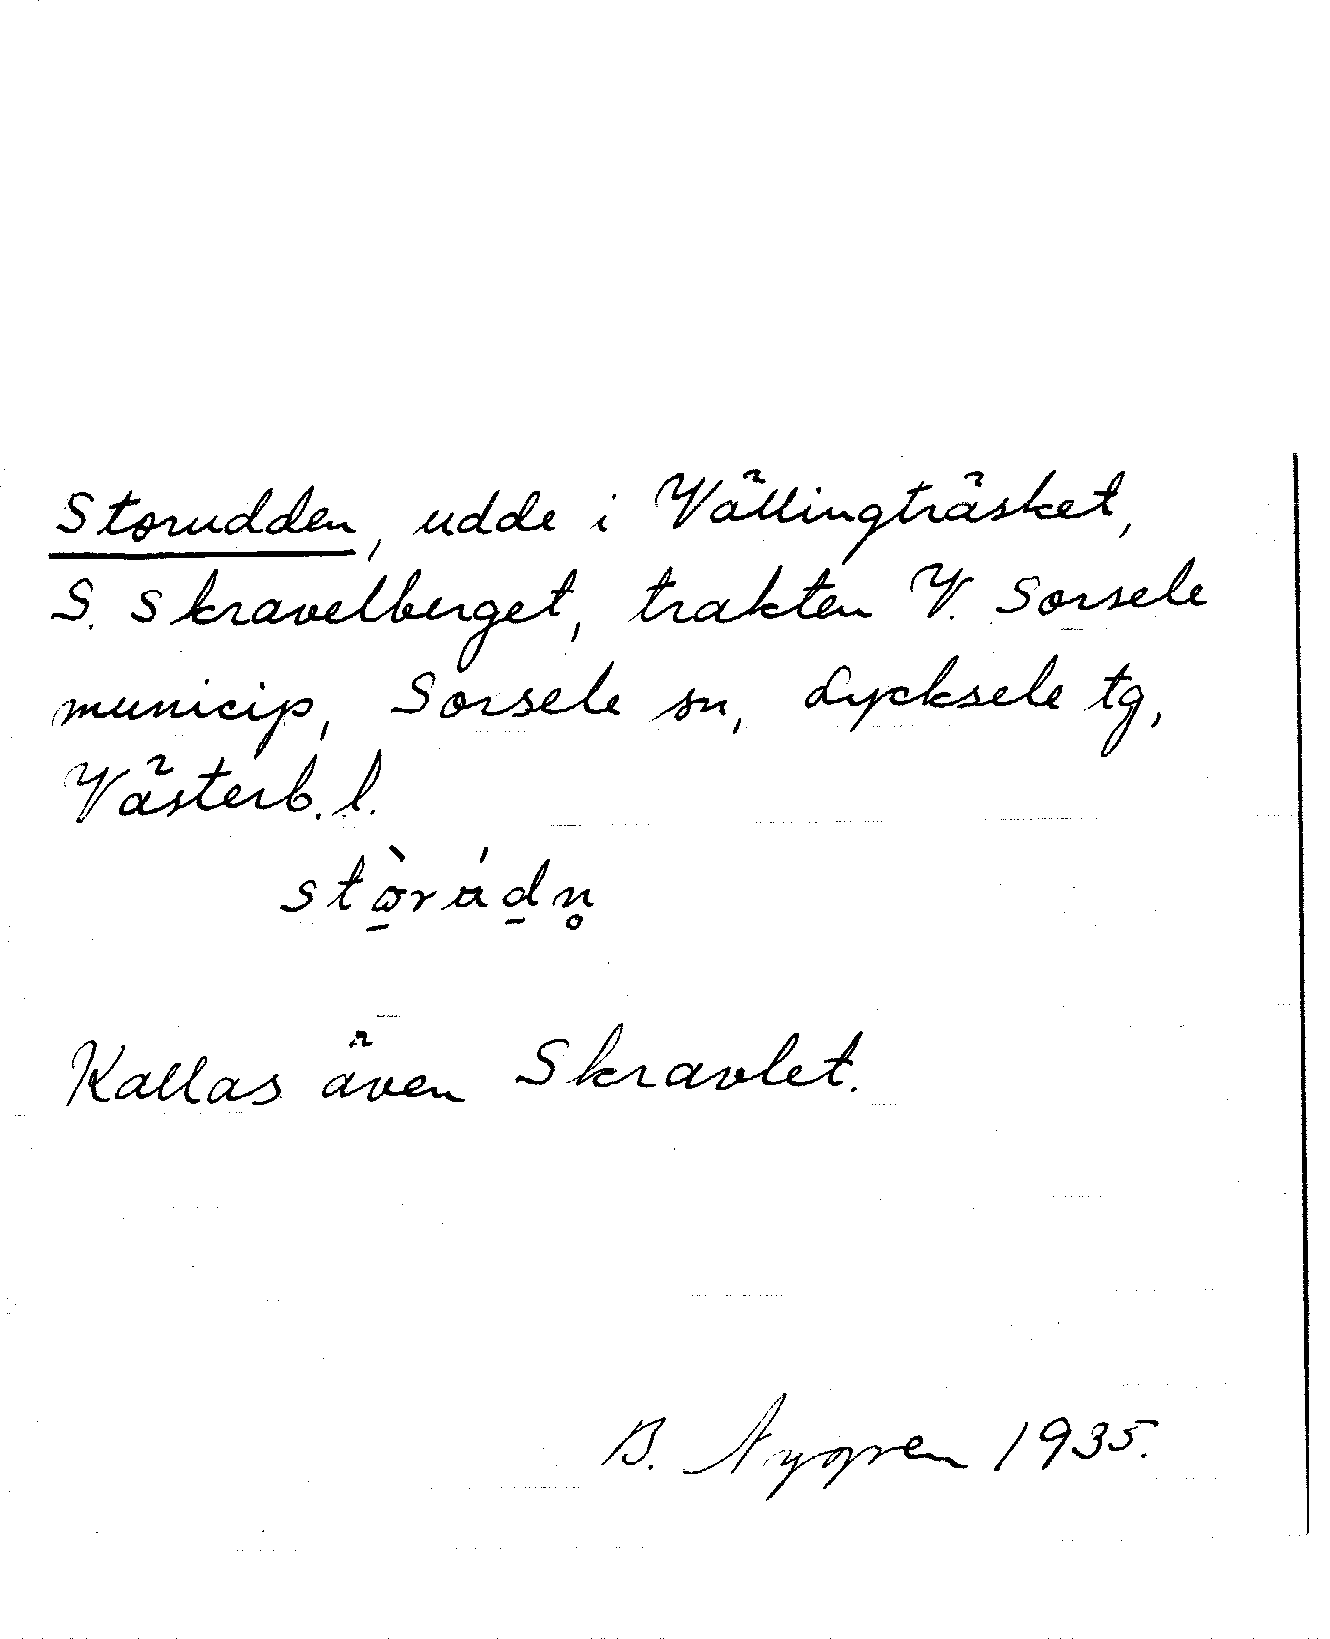 Storudden, udde i Vällingträsket,
S. Skravelberget, trakten V. Sorsele
municip, Sorsele sn, Lycksele tg,
Västerb. l.
Kallas även Skravlet.
B. Nygren 1935.